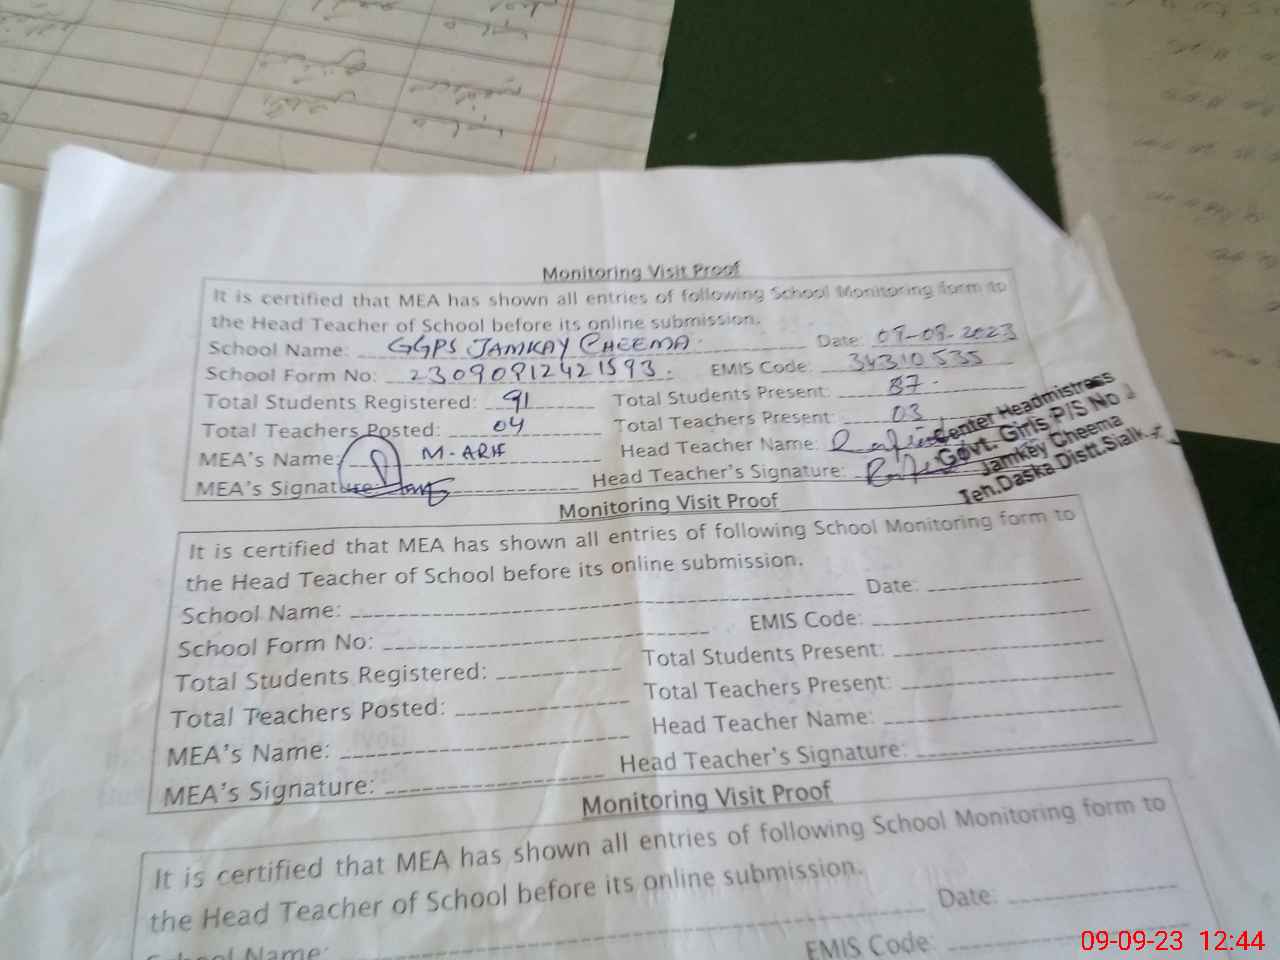 Monitoring Visit Proof
It is certified that MEA has shown all entries of following School Monitoring form to
the Head Teacher of School before its online submission.
School Name: GGPS JAMKAY CHEEMA Date: 09-09-2023
School Form No: 23090912421593. EMIS Code: 34310535
Total Students Registered: 91 Total Students Present: 87
Total Teachers Posted: 04 Total Teachers Present: 03
MEA's Name: M-ARIF Head Teacher Name:
MEA's Signature: Head Teacher's Signature:
Center Headmistress
Govt. Girls P/S No
Jamkey Cheema
Teh.Daska Distt.Sialk
Monitoring Visit Proof
It is certified that MEA has shown all entries of following School Monitoring form to
the Head Teacher of School before its online submission.
School Name: Date:
School Form No: EMIS Code:
Total Students Registered: Total Students Present:
Total Teachers Posted: Total Teachers Present:
MEA's Name: Head Teacher Name:
MEA's Signature: Head Teacher's Signature:
Monitoring Visit Proof
It is certified that MEA has shown all entries of following School Monitoring form to
the Head Teacher of School before its online submission.
Date:
School Name:
EMIS Code:
09-09-23 12:44